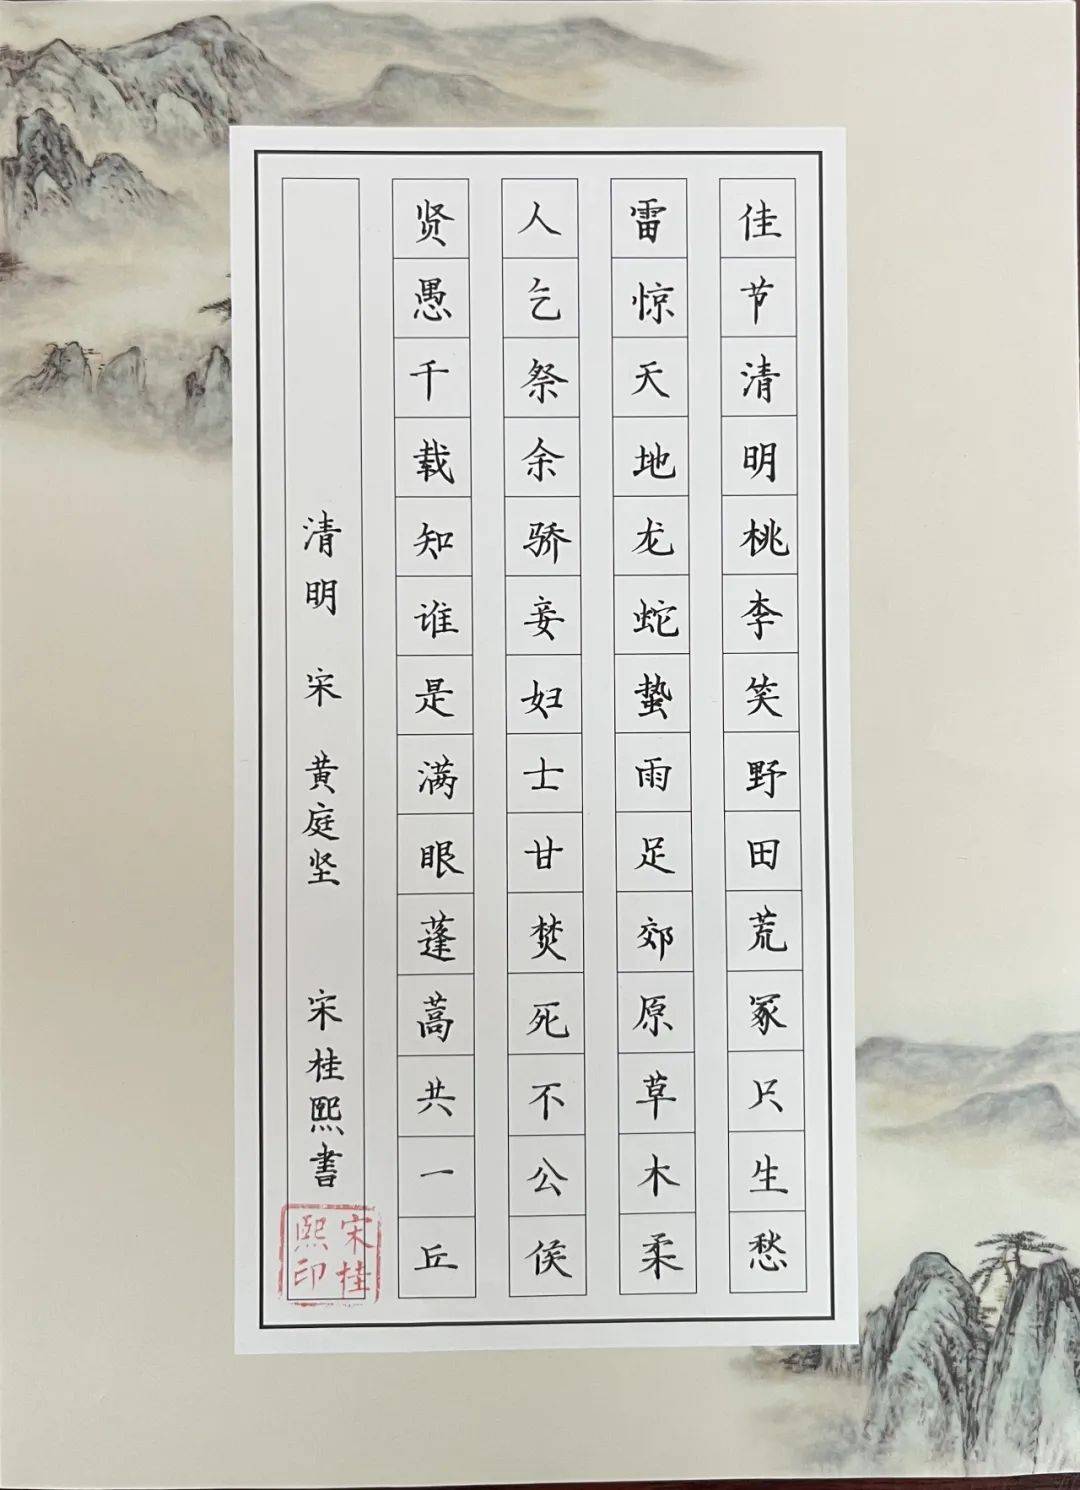 佳节清明桃李笑野田荒冢只生愁
雷惊天地龙蛇蛰雨足郊原草木柔
人乞祭余骄妾妇士甘焚死不公侯
贤愚千载知谁是满眼蓬蒿共一丘
清明 宋 黄庭坚 宋桂熙書
宋桂
熙印